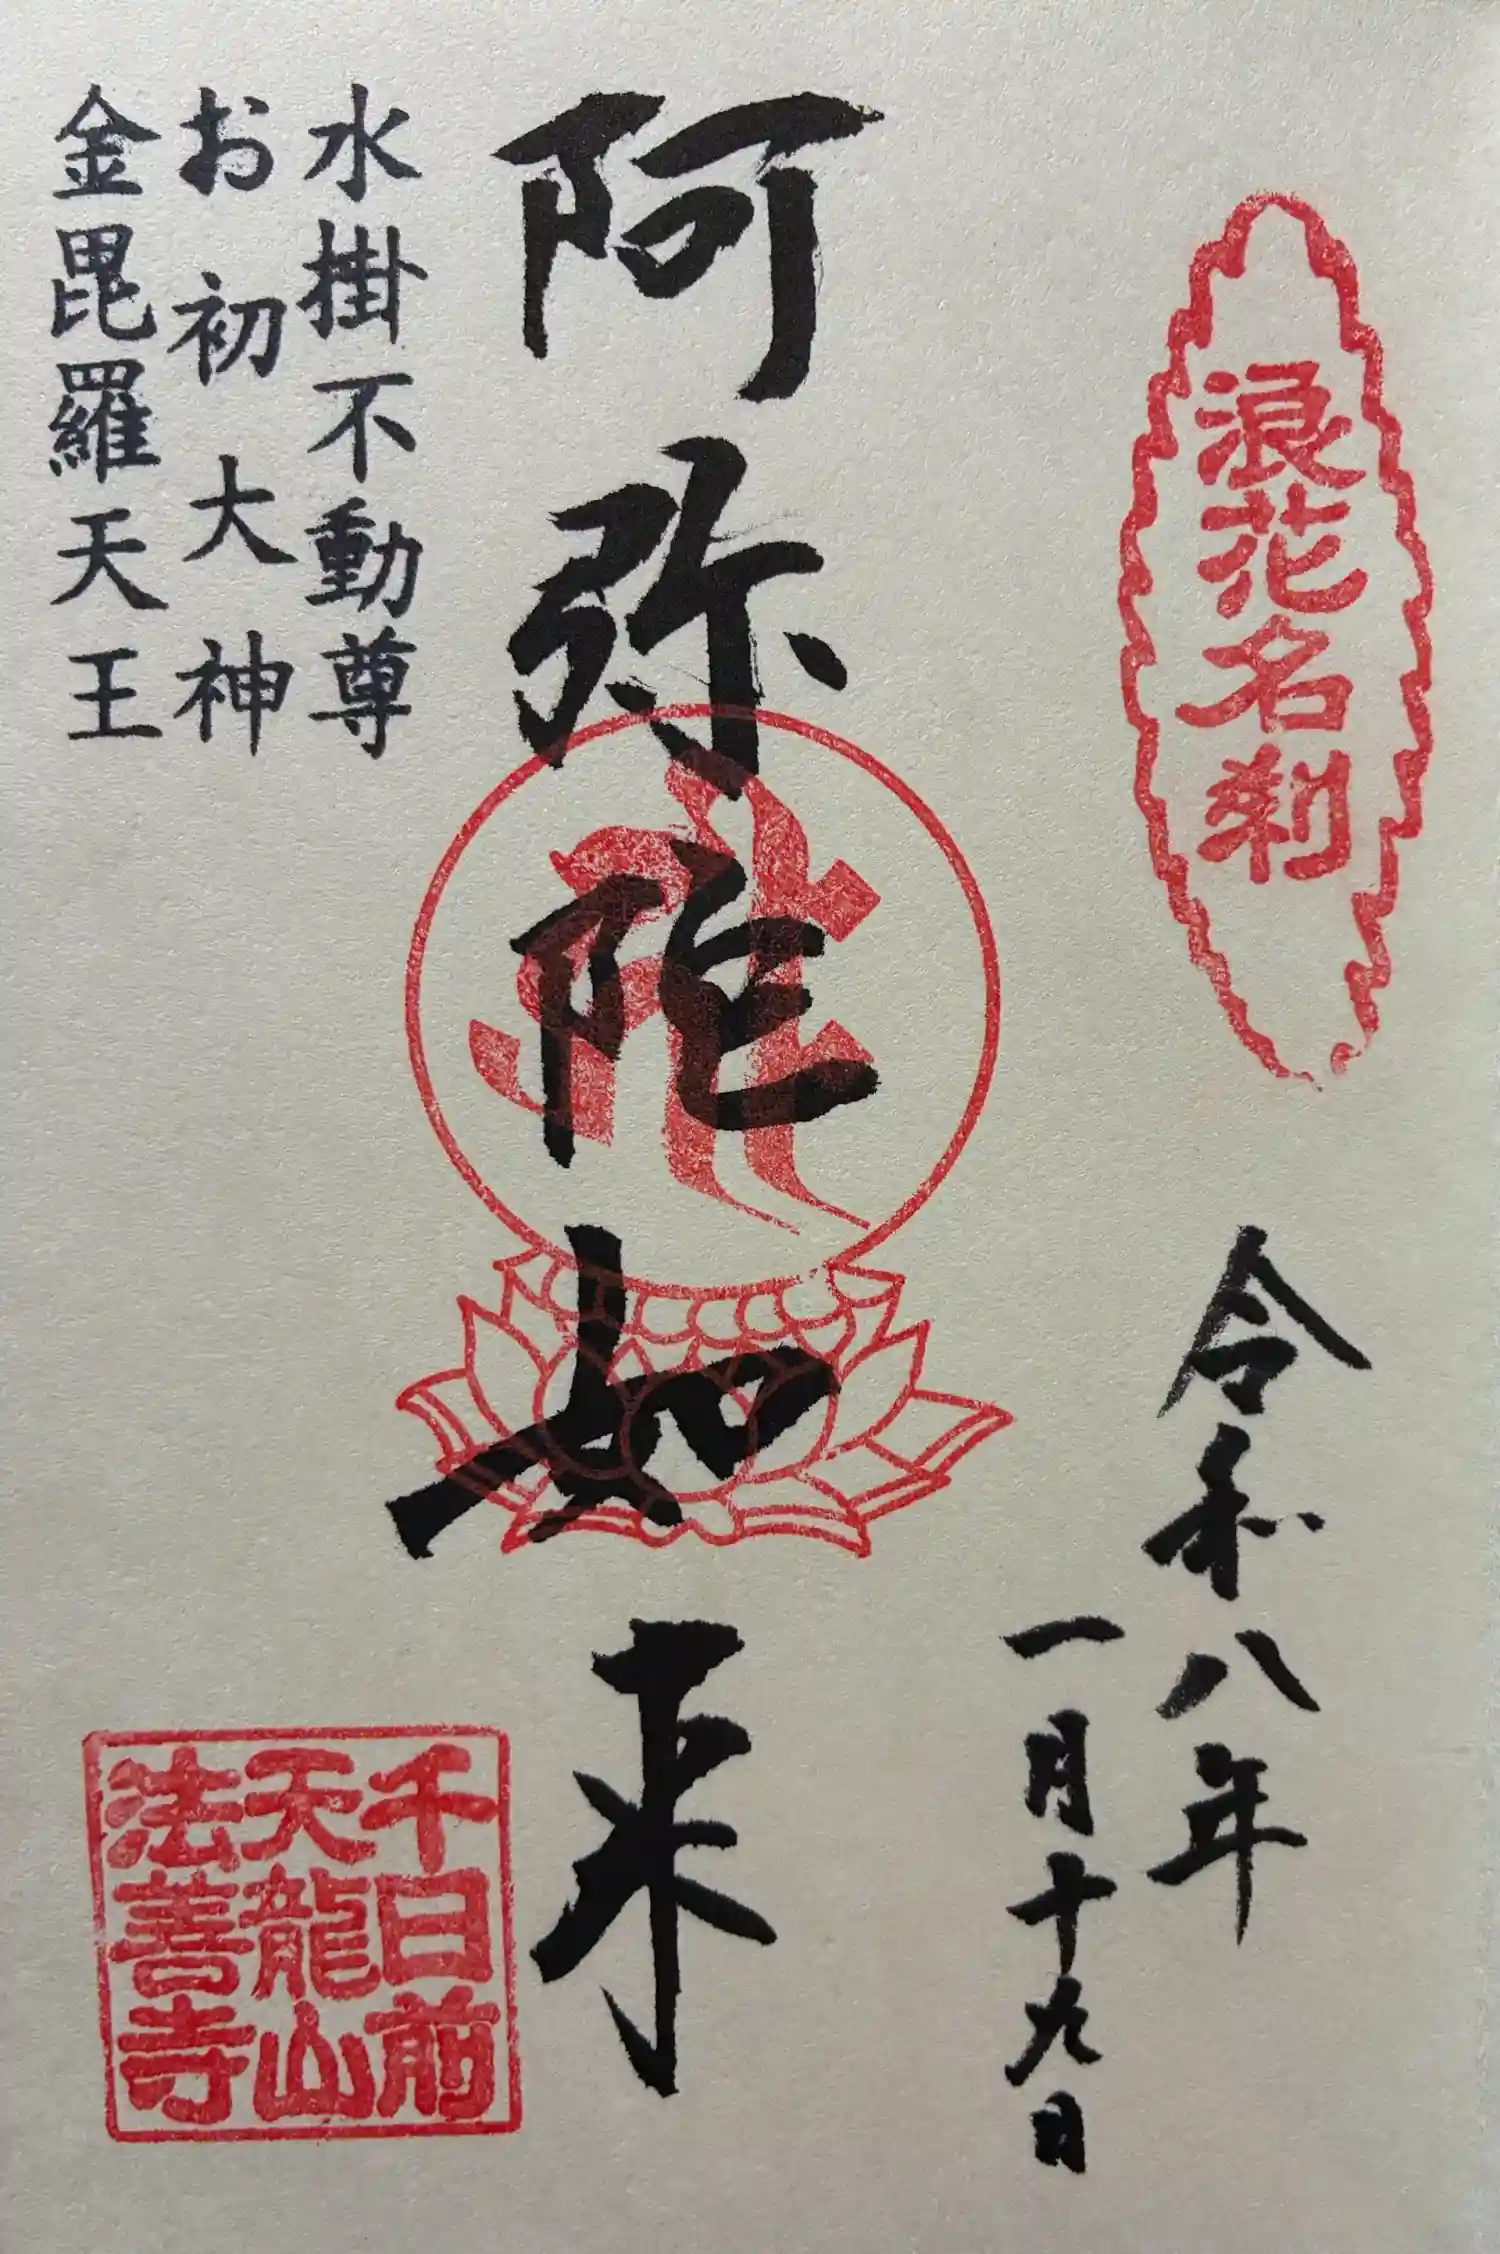 浪花名刹
令和八年
一月十九日
阿弥陀如来
水掛不動尊
お初大神
金毘羅天王
千日前
天龍山
法善寺